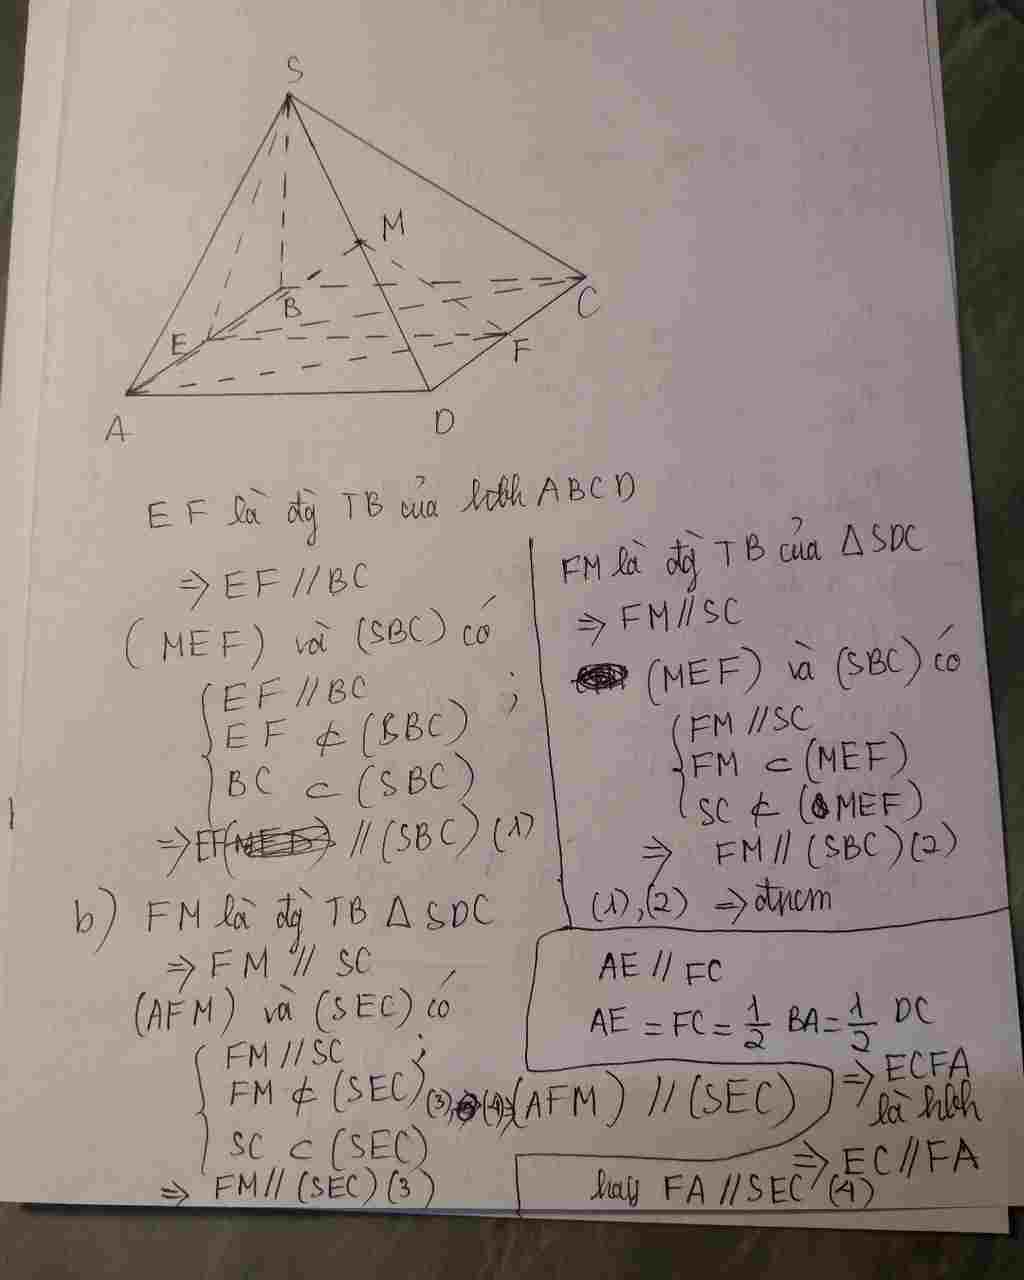 S
M
B
C
E
F
A
D
EF là đg TB của hbh ABCD
=> EF // BC
(MEF) và (SBC) có
EF // BC ;
EF ⊄ (SBC)
BC ⊂ (SBC)
=> EF // (SBC) (1)
FM là đg TB của Δ SDC
=> FM // SC
(MEF) và (SBC) có
FM // SC
FM ⊂ (MEF)
SC ⊄ (MEF)
=> FM // (SBC) (2)
(1), (2) => đncm
b) FM là đg TB Δ SDC
=> FM // SC
(AFM) và (SEC) có
FM // SC ;
FM ⊄ (SEC)
SC ⊂ (SEC)
=> FM // (SEC) (3)
AE // FC
AE = FC = 1/2 BA = 1/2 DC
=> ECFA
là hbh
=> EC // FA
hay FA // SEC (4)
(3), (4) => (AFM) // (SEC)